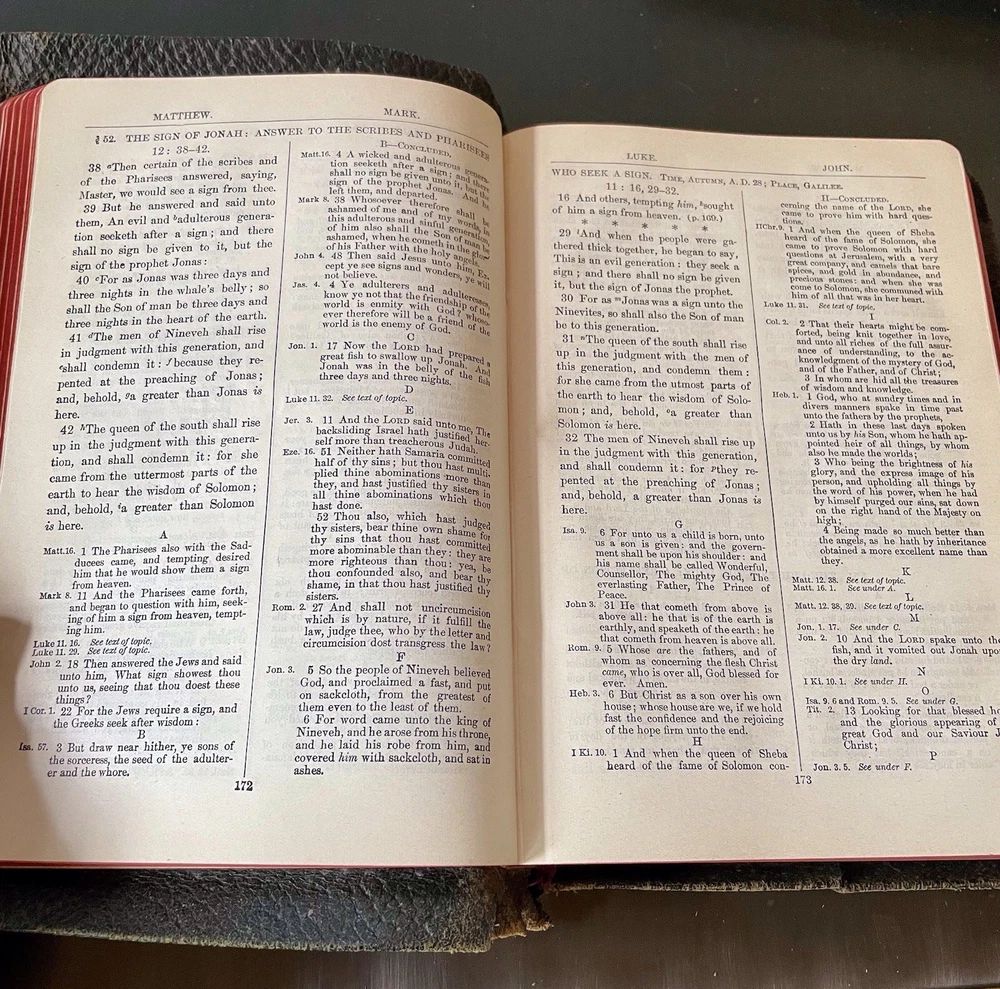 MATTHEW. MARK.
§ 52. THE SIGN OF JONAH: ANSWER TO THE SCRIBES AND PHARISEES
12 : 38–42.
38 ᵃThen certain of the scribes and
of the Pharisees answered, saying,
Master, we would see a sign from thee.
39 But he answered and said unto
them, An evil and ᵇadulterous genera-
tion seeketh after a sign; and there
shall no sign be given to it, but the
sign of the prophet Jonas:
40 ᶜFor as Jonas was three days and
three nights in the whale's belly; so
shall the Son of man be three days and
three nights in the heart of the earth.
41 ᵈThe men of Nineveh shall rise
in judgment with this generation, and
ᵉshall condemn it: ᶠbecause they re-
pented at the preaching of Jonas;
and, behold, ᵍa greater than Jonas is
here.
42 ʰThe queen of the south shall rise
up in the judgment with this genera-
tion, and shall condemn it: for she
came from the uttermost parts of the
earth to hear the wisdom of Solomon;
and, behold, ⁱa greater than Solomon
is here.
A
Matt.16. 1 The Pharisees also with the Sad-
ducees came, and tempting desired
him that he would show them a sign
from heaven.
Mark 8. 11 And the Pharisees came forth,
and began to question with him, seek-
ing of him a sign from heaven, tempt-
ing him.
Luke 11. 16. See text of topic.
Luke 11. 29. See text of topic.
John 2. 18 Then answered the Jews and said
unto him, What sign showest thou
unto us, seeing that thou doest these
things?
I Cor. 1. 22 For the Jews require a sign, and
the Greeks seek after wisdom:
B
Isa. 57. 3 But draw near hither, ye sons of
the sorceress, the seed of the adulter-
er and the whore.
B—CONCLUDED.
Matt.16. 4 A wicked and adulterous genera-
tion seeketh after a sign; and there
shall no sign be given unto it, but the
sign of the prophet Jonas. And he
left them, and departed.
Mark 8. 38 Whosoever therefore shall be
ashamed of me and of my words, in
this adulterous and sinful generation,
of him also shall the Son of man be
ashamed, when he cometh in the glory
of his Father with the holy angels.
John 4. 48 Then said Jesus unto him, Ex-
cept ye see signs and wonders, ye will
not believe.
Jas. 4. 4 Ye adulterers and adulteresses,
know ye not that the friendship of the
world is enmity with God? whoso-
ever therefore will be a friend of the
world is the enemy of God.
C
Jon. 1. 17 Now the LORD had prepared a
great fish to swallow up Jonah. And
Jonah was in the belly of the fish
three days and three nights.
D
Luke 11. 32. See text of topic.
E
Jer. 3. 11 And the LORD said unto me, The
backsliding Israel hath justified her-
self more than treacherous Judah.
Eze. 16. 51 Neither hath Samaria committed
half of thy sins; but thou hast multi-
plied thine abominations more than
they, and hast justified thy sisters in
all thine abominations which thou
hast done.
52 Thou also, which hast judged
thy sisters, bear thine own shame for
thy sins that thou hast committed
more abominable than they: they are
more righteous than thou: yea, be
thou confounded also, and bear thy
shame, in that thou hast justified thy
sisters.
Rom. 2. 27 And shall not uncircumcision
which is by nature, if it fulfill the
law, judge thee, who by the letter and
circumcision dost transgress the law?
F
Jon. 3. 5 So the people of Nineveh believed
God, and proclaimed a fast, and put
on sackcloth, from the greatest of
them even to the least of them.
6 For word came unto the king of
Nineveh, and he arose from his throne,
and he laid his robe from him, and
covered him with sackcloth, and sat in
ashes.
172
LUKE. JOHN.
WHO SEEK A SIGN. TIME, AUTUMN, A. D. 28; PLACE, GALILEE.
11 : 16, 29–32.
16 And others, tempting him, ᵏsought
of him a sign from heaven. (p. 169.)
* * * *
29 ˡAnd when the people were ga-
thered thick together, he began to say,
This is an evil generation: they seek a
sign; and there shall no sign be given
it, but the sign of Jonas the prophet.
30 For as ᵐJonas was a sign unto the
Ninevites, so shall also the Son of man
be to this generation.
31 ⁿThe queen of the south shall rise
up in the judgment with the men of
this generation, and condemn them:
for she came from the utmost parts of
the earth to hear the wisdom of Solo-
mon; and, behold, ᵒa greater than
Solomon is here.
32 The men of Nineveh shall rise up
in the judgment with this generation,
and shall condemn it: for ᵖthey re-
pented at the preaching of Jonas;
and, behold, a greater than Jonas is
here.
G
Isa. 9. 6 For unto us a child is born, unto
us a son is given: and the govern-
ment shall be upon his shoulder: and
his name shall be called Wonderful,
Counsellor, The mighty God, The
everlasting Father, The Prince of
Peace.
John 3. 31 He that cometh from above is
above all: he that is of the earth is
earthly, and speaketh of the earth: he
that cometh from heaven is above all.
Rom. 9. 5 Whose are the fathers, and of
whom as concerning the flesh Christ
came, who is over all, God blessed for
ever. Amen.
Heb. 3. 6 But Christ as a son over his own
house; whose house are we, if we hold
fast the confidence and the rejoicing
of the hope firm unto the end.
H
I Ki. 10. 1 And when the queen of Sheba
heard of the fame of Solomon con-
H—CONCLUDED.
cerning the name of the LORD, she
came to prove him with hard ques-
tions.
IIChr.9. 1 And when the queen of Sheba
heard of the fame of Solomon, she
came to prove Solomon with hard
questions at Jerusalem, with a very
great company, and camels that bare
spices, and gold in abundance, and
precious stones: and when she was
come to Solomon, she communed with
him of all that was in her heart.
Luke 11. 31. See text of topic.
I
Col. 2. 2 That their hearts might be com-
forted, being knit together in love,
and unto all riches of the full assur-
ance of understanding, to the ac-
knowledgment of the mystery of God,
and of the Father, and of Christ;
3 In whom are hid all the treasures
of wisdom and knowledge.
Heb. 1. 1 God, who at sundry times and in
divers manners spake in time past
unto the fathers by the prophets,
2 Hath in these last days spoken
unto us by his Son, whom he hath ap-
pointed heir of all things, by whom
also he made the worlds;
3 Who being the brightness of his
glory, and the express image of his
person, and upholding all things by
the word of his power, when he had
by himself purged our sins, sat down
on the right hand of the Majesty on
high;
4 Being made so much better than
the angels, as he hath by inheritance
obtained a more excellent name than
they.
K
Matt. 12. 38. See text of topic.
Matt. 16. 1. See under A.
L
Matt. 12. 38, 39. See text of topic.
M
Jon. 1. 17. See under C.
Jon. 2. 10 And the LORD spake unto the
fish, and it vomited out Jonah upo
the dry land.
N
I Ki. 10. 1. See under H.
O
Isa. 9. 6 and Rom. 9. 5. See under G.
Tit. 2. 13 Looking for that blessed ho
and the glorious appearing of
great God and our Saviour J
Christ;
P
Jon. 3. 5. See under F.
173